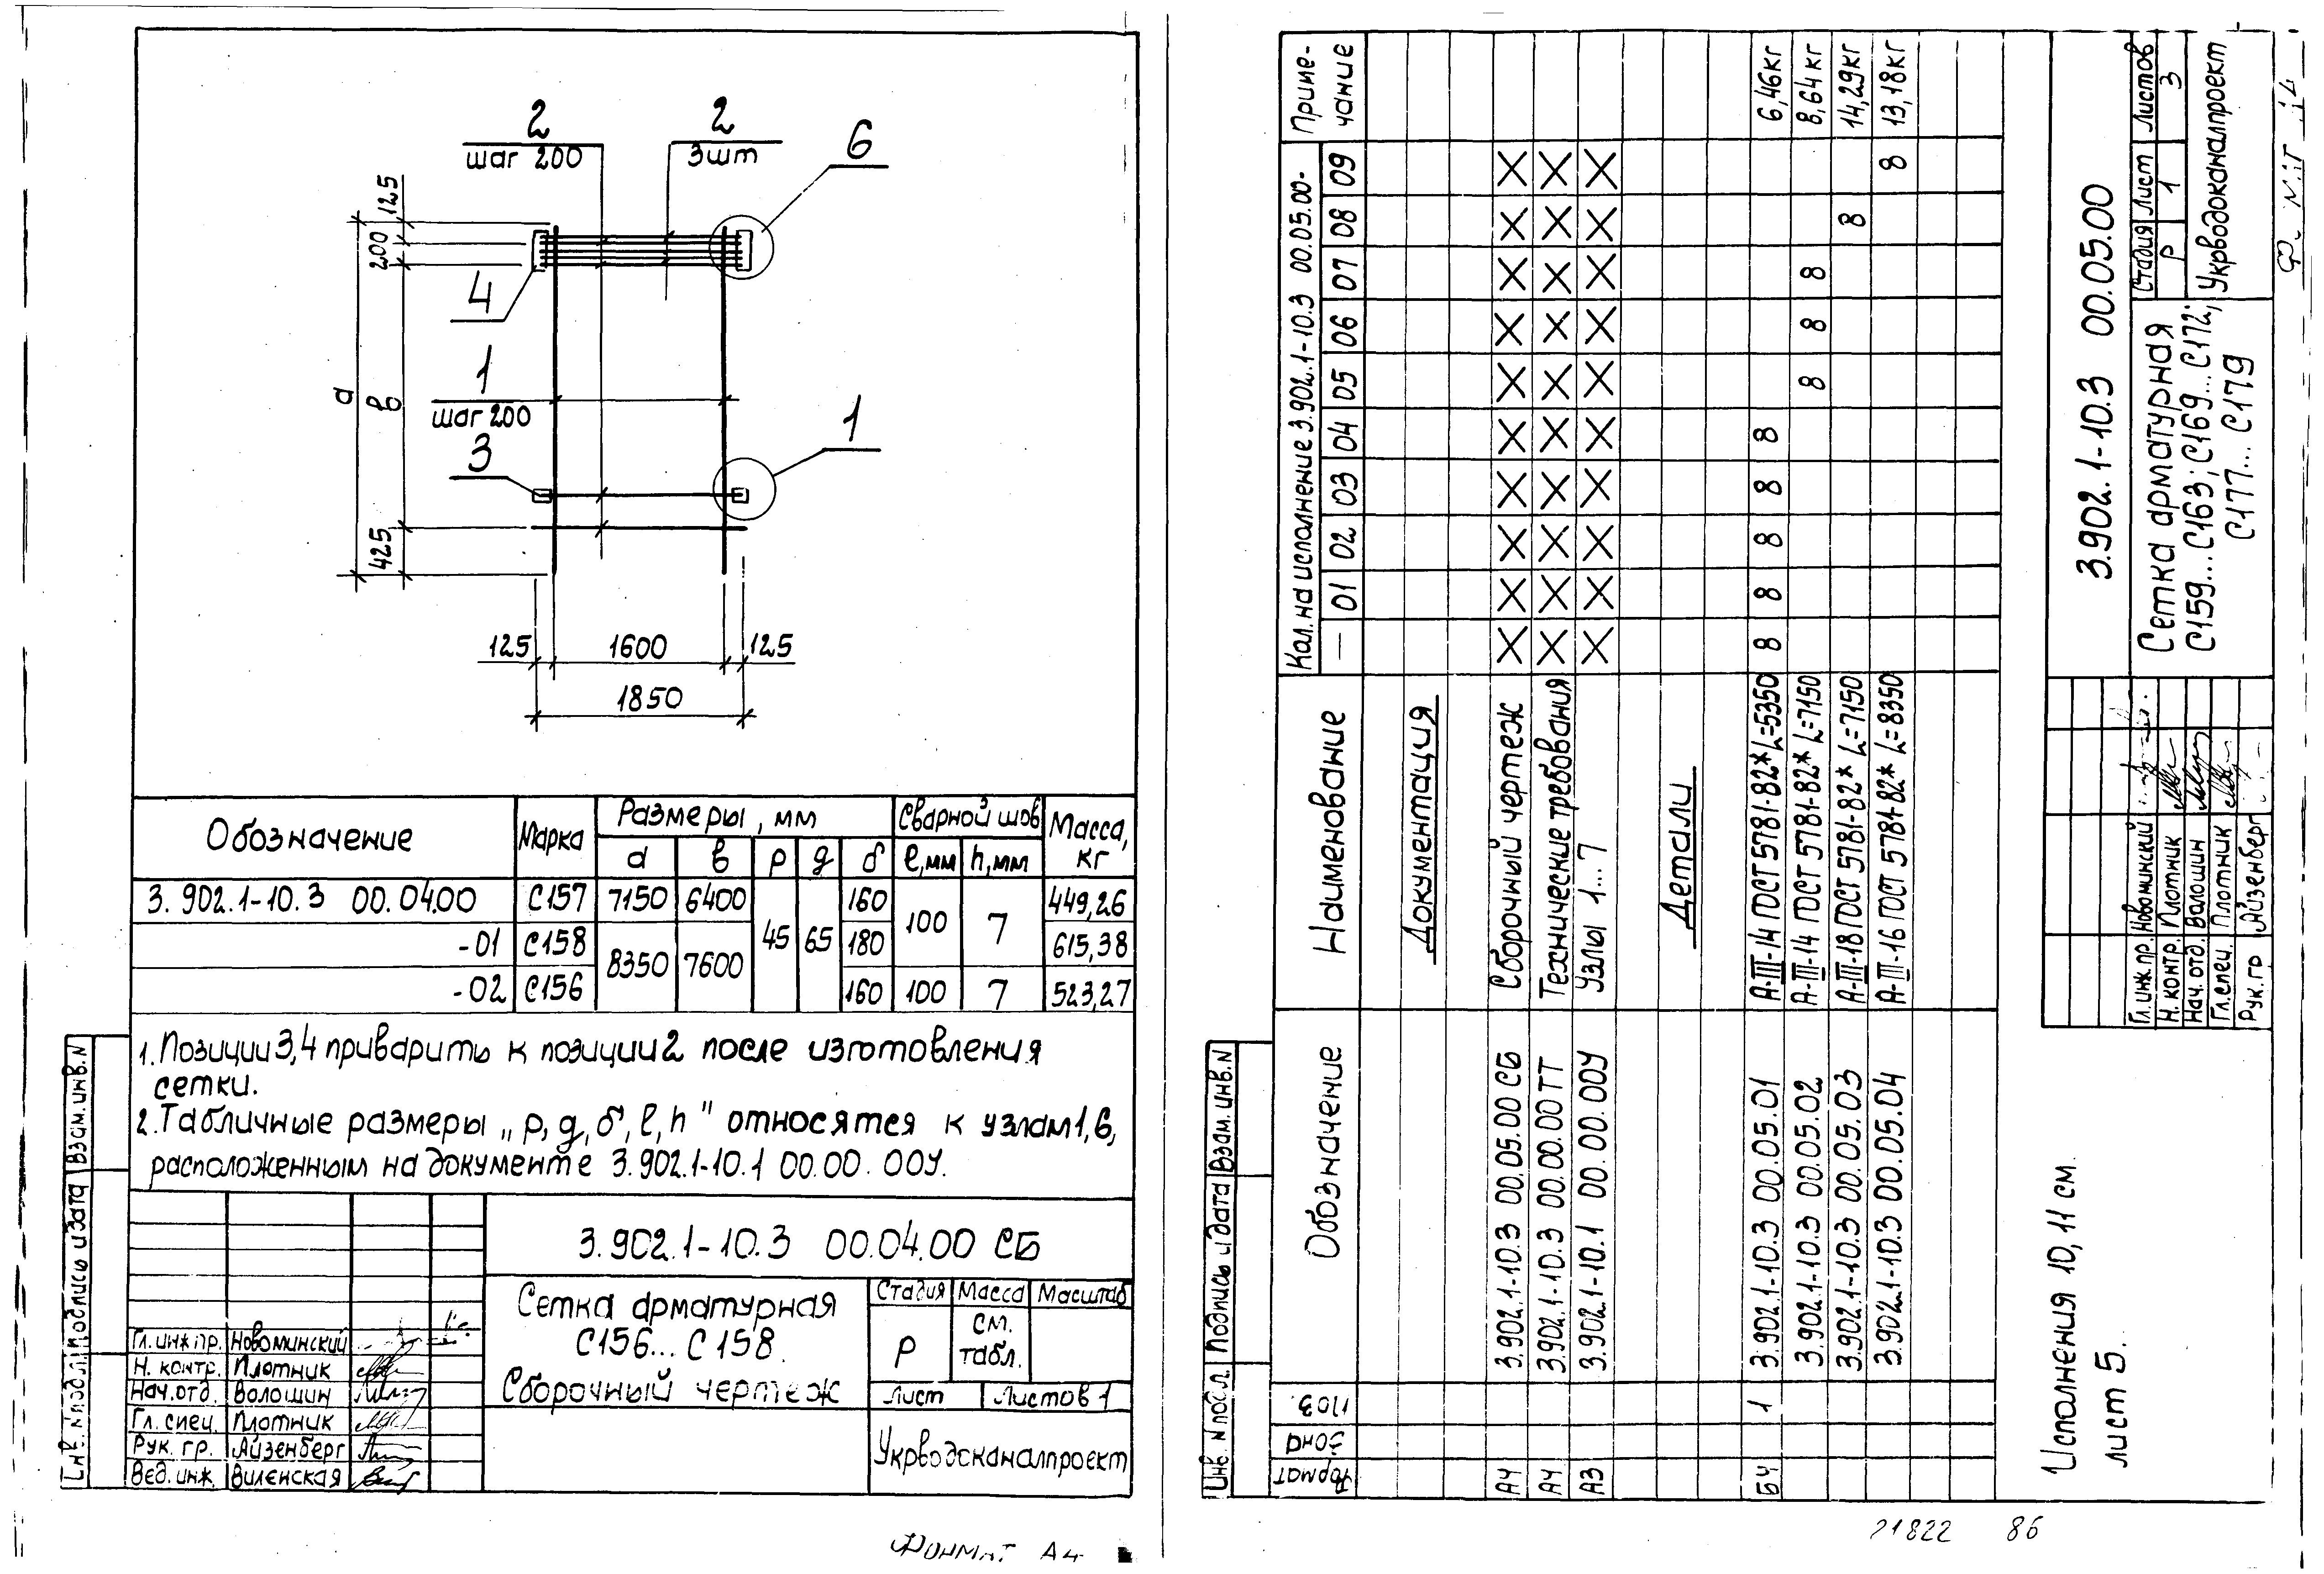 2
шаг 200
2
3шт
6
125
200
4
а
в
1
шаг 200
3
1
425
125
1600
125
1850
Обозначение
Марка
Размеры, мм
Сварной шов
Масса, кг
а
в
р
g
δ
ℓ,мм
h,мм
3.902.1-10.3 00.04.00
С157
7150
6400
45
65
160
100
7
449,26
-01
С158
8350
7600
180
615,38
-02
С156
160
100
7
523,27
1. Позиции 3,4 приварить к позиции 2 после изготовления
сетки.
2. Табличные размеры „р, g, δ, ℓ, h" относятся к узлам 1,6,
расположенным на документе 3.902.1-10.1 00.00.00У.
3.902.1-10.3 00.04.00 СБ
Сетка арматурная
С156...С158.
Сборочный чертеж
Стадия
Масса
Масштаб
Р
см.
табл.
Лист
Листов 1
Укрводоканалпроект
Гл. инж.пр. Новоминский
Н. контр. Плотник
Нач.отд. Волошин
Гл. спец. Плотник
Рук. гр. Айзенберг
Вед. инж. Виленская
Инв. N подл.
Подпись и дата
Взам. инв. N
Формат А4
Формат
Зона
Поз.
Обозначение
Наименование
Кол. на исполнение 3.902.1-10.3 00.05.00-
— 01 02 03 04 05 06 07 08 09
Приме-
чание
Документация
А4 3.902.1-10.3 00.05.00 СБ Сборочный чертеж X X X X X X X X X X
А4 3.902.1-10.3 00.00.00 ТТ Технические требования X X X X X X X X X X
А3 3.902.1-10.1 00.00.00У Узлы 1...7 X X X X X X X X X X
Детали
БЧ 1 3.902.1-10.3 00.05.01 А-III-14 ГОСТ 5781-82* L=5350 8 8 8 8 8 6,46кг
3.902.1-10.3 00.05.02 А-III-14 ГОСТ 5781-82* L=7150 8 8 8 8,64кг
3.902.1-10.3 00.05.03 А-III-18 ГОСТ 5781-82* L=7150 8 14,29кг
3.902.1-10.3 00.05.04 А-III-16 ГОСТ 5781-82* L=8350 8 13,18кг
Исполнения 10,11 см.
лист 5.
3.902.1-10.3 00.05.00
Сетка арматурная
С159...С163; С169...С172;
С177...С179
Стадия Лист Листов
Р 1 3
Укрводоканалпроект
Гл.инж.пр. Новоминский
Н. контр. Плотник
Нач.отд. Волошин
Гл.спец. Плотник
Рук.гр Айзенберг
Инв. N подл.
Подпись и дата
Взам. инв. N
21822 86